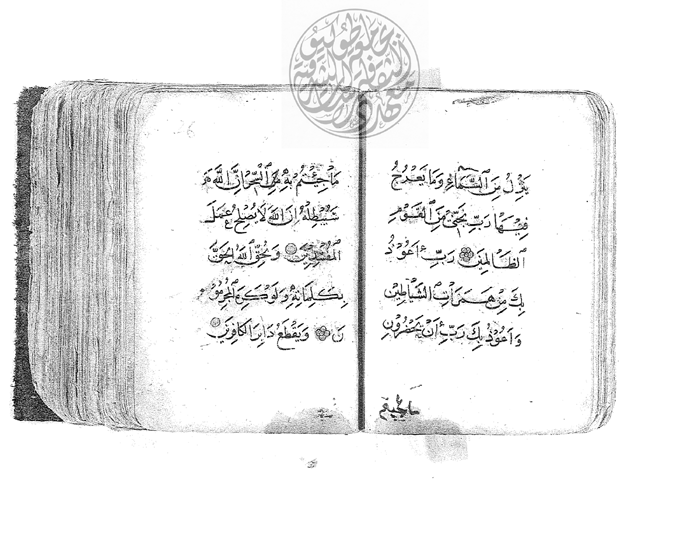 ينزل من السماء وما يعرج
فيها رب نجني من القوم
الظالمين رب اعوذ
بك من همزات الشياطين
واعوذ بك رب ان يحضرون
ما جئتم
ما جئتم به من السحر ان الله
سيبطله ان الله لا يصلح عمل
المفسدين ويحق الله الحق
بكلماته ولو كره المجرمو
ن ويقطع دابر الكافرين